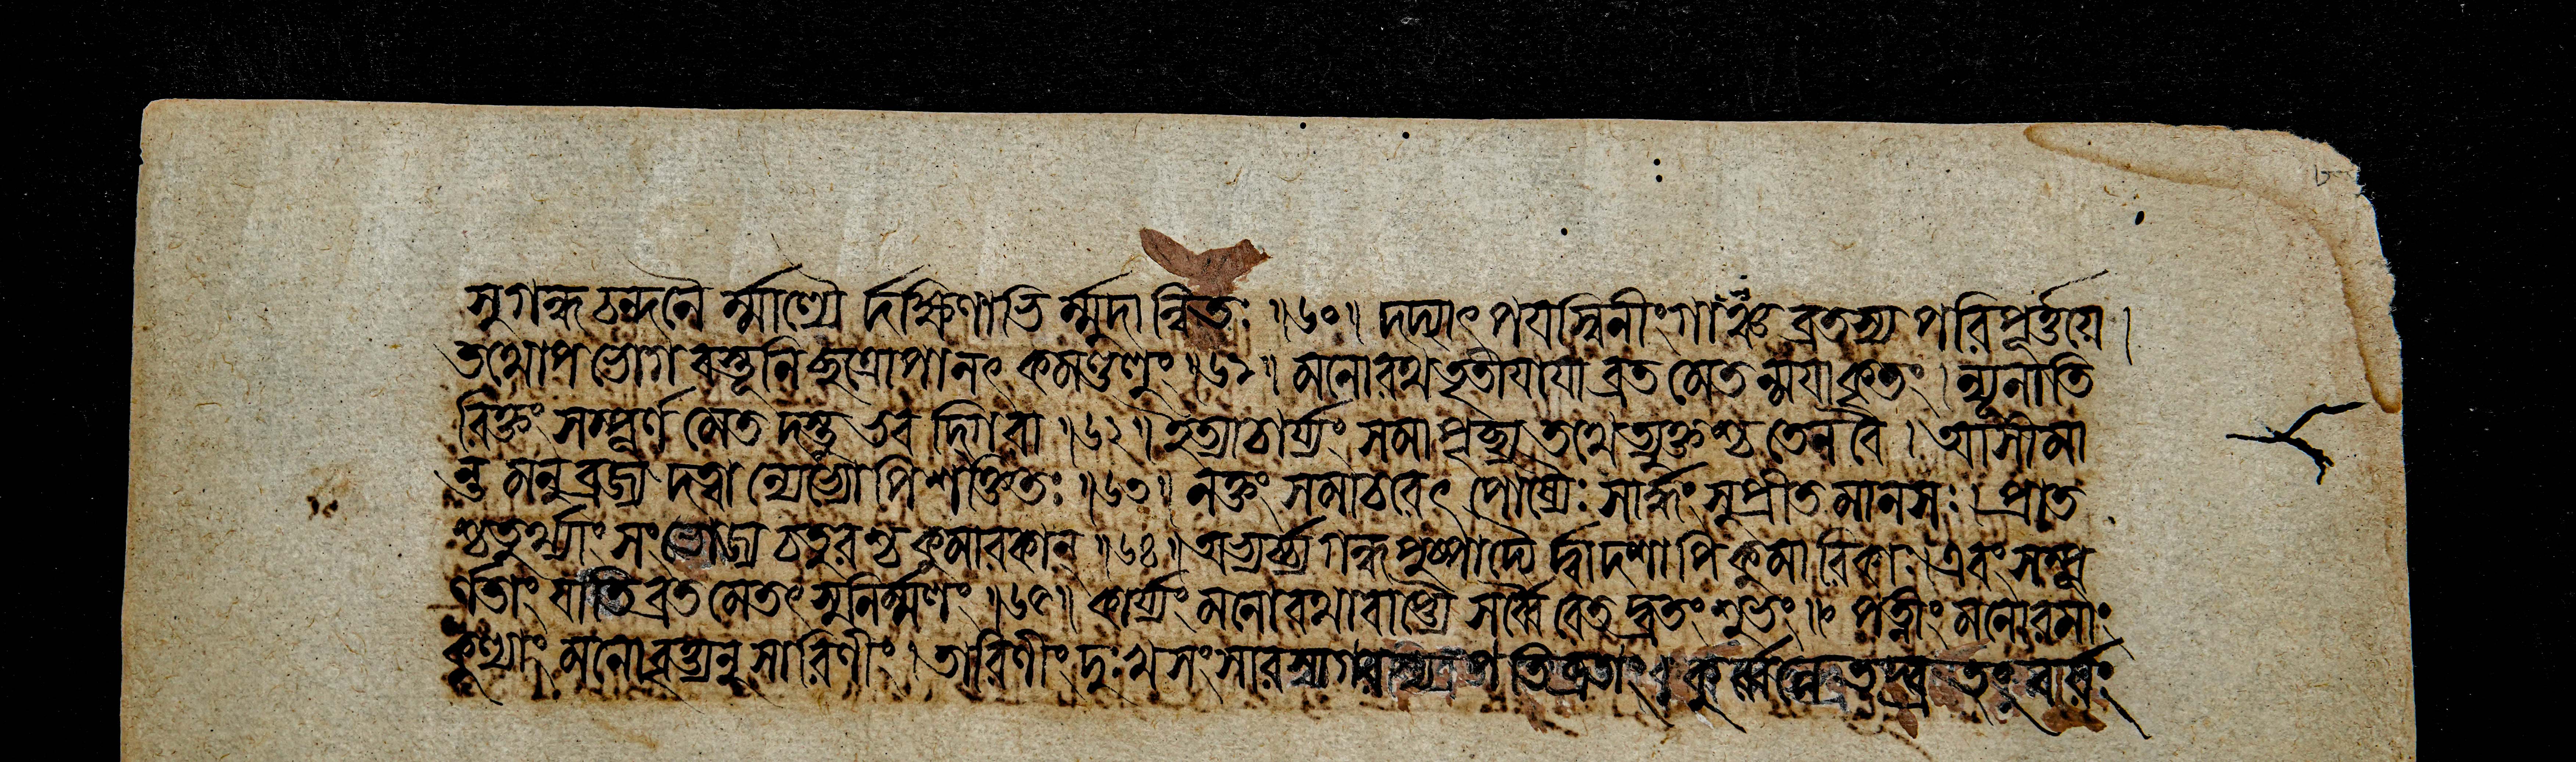 সুগন্ধচন্দনৈ র্ম্মাল্যৈ র্দক্ষিণাভি র্ম্মুদান্বিতঃ ॥৬০॥ দদ্যাৎ পযস্বিনীং গাঞ্চ ব্রতস্য পরিপূর্ত্তয়ে ।
তথোপভোগবস্তূনি ছত্রোপানৎ কমণ্ডলুং ॥৬১॥ মনোরথতৃতীযাযা ব্রতমেতন্মযাকৃতং । ন্যূনাতি
রিক্তং সম্পূর্ণমেতদস্তু ভবদ্গিরা ॥৬২॥ ইত্যাচার্য্যং সমাপৃচ্ছ্য তথেত্যুক্তশ্চ তেন বৈ । আসীমা
ন্তমনুব্রজ্য দত্বান্যেভ্যোপি শক্তিতঃ ॥৬৩॥ নক্তং সমাচরেৎ পোষ্যৈঃ সার্দ্ধং সুপ্রীতমানসঃ । প্রাত
শ্চতুর্থ্যাং সংভোজ্য চতুরশ্চ কুমারকান্ ॥৬৪॥ অভ্যর্চ্য গন্ধপুষ্পাদ্যৈ র্দ্বাদশাপি কুমারিকাঃ । এবং সম্পূ
র্ণতাং যাতি ব্রতমেতৎ সুনির্ম্মলং ॥৬৫॥ কার্য্যং মনোরথাবাপ্ত্যৈ সর্ব্বৈরেতদ্ব্রতং শুভং ॥ পত্নীং মনোরমাং
কুল্যাং মনোবৃত্ত্যনুসারিণীং । তারিণীং দুঃখসংসারসাগরস্য পতিব্রতাং । কুর্ব্বন্নেতদ্ব্রতং বর্ষং